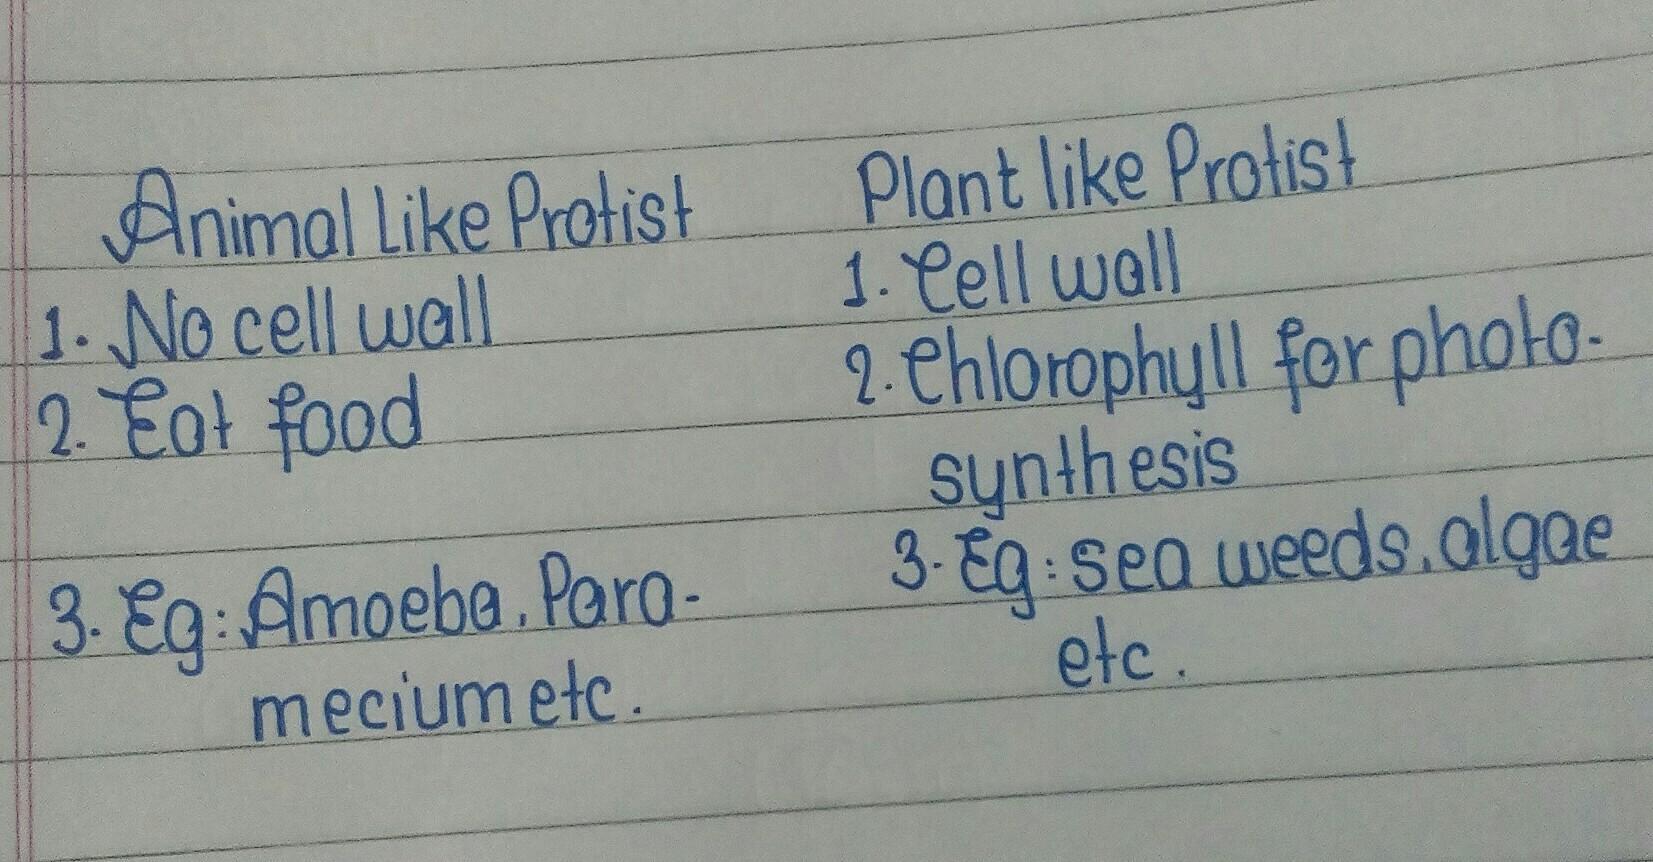 Animal Like Protist
1. No cell wall
2. Eat food
3. Eg: Amoeba, Para-
mecium etc.
Plant like Protist
1. Cell wall
2. Chlorophyll for photo-
synthesis
3. Eg: sea weeds, algae
etc.